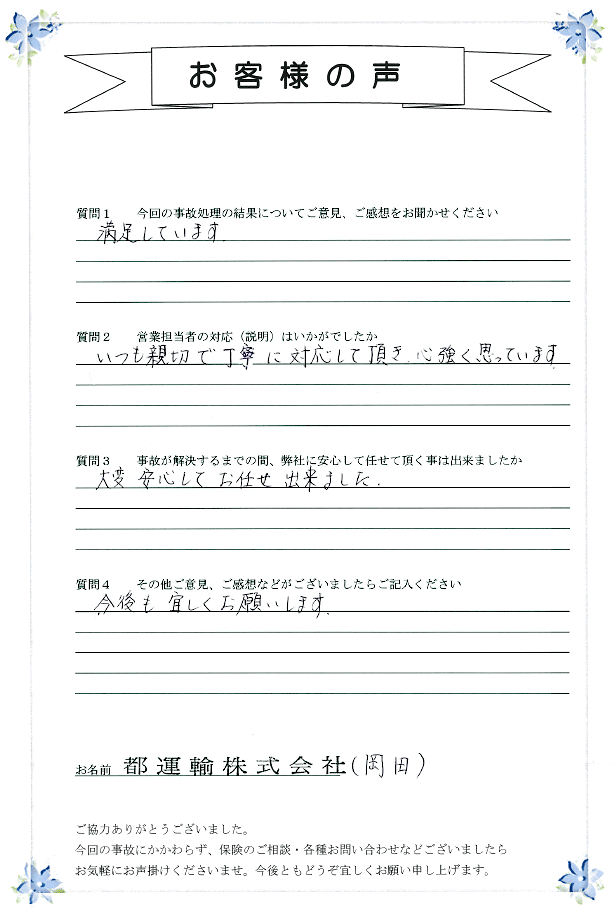 お客様の声
質問１　今回の事故処理の結果についてご意見、ご感想をお聞かせください
満足しています.
質問２　営業担当者の対応（説明）はいかがでしたか
いつも親切で丁寧に対応して頂き、心強く思っています
質問３　事故が解決するまでの間、弊社に安心して任せて頂く事は出来ましたか
大変安心してお任せ出来ました.
質問４　その他ご意見、ご感想などがございましたらご記入ください
今後も宜しくお願いします.
お名前　都運輸株式会社(岡田)
ご協力ありがとうございました。
今回の事故にかかわらず、保険のご相談・各種お問い合わせなどございましたら
お気軽にお声掛けくださいませ。今後ともどうぞ宜しくお願い申し上げます。